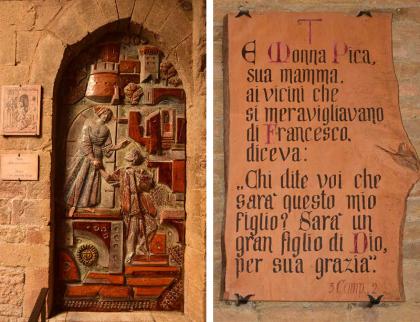 E Monna Pica,
sua mamma,
ai vicini che
si meravigliavano
di Francesco,
diceva:
„Chi dite voi che
sarà questo mio
figlio? Sarà un
gran figlio di Dio,
per sua grazia".
3 Comp. 2